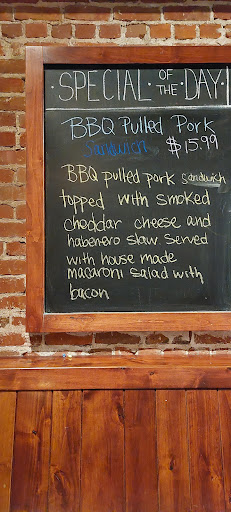 SPECIAL OF THE DAY!
BBQ Pulled Pork
Sandwich $15.99
BBQ pulled pork sandwich
topped with smoked
cheddar cheese and
habenero slaw. Served
with house made
macaroni salad with
bacon